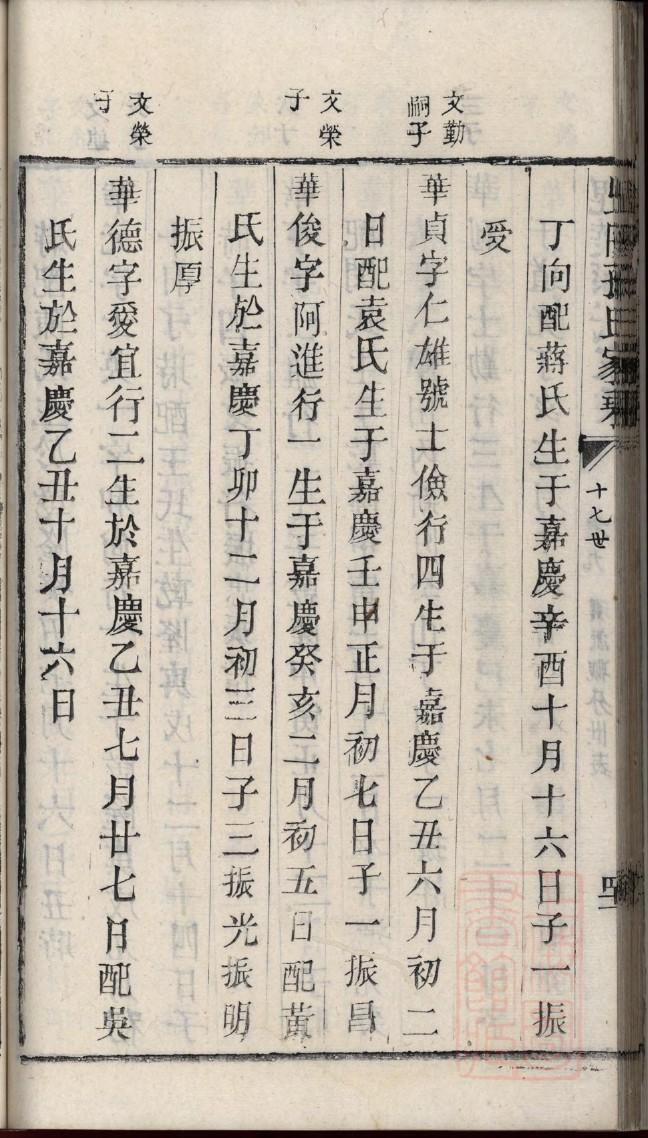 氏家乘
十七世
丁向配蔣氏生于嘉慶辛酉十月十六日子一振
受
文勤
嗣子
華貞字仁雄號士儉行四生于嘉慶乙丑六月初二
日配袁氏生于嘉慶壬申正月初七日子一振昌
文榮
子
華俊字阿進行一生于嘉慶癸亥二月初五日配黃
氏生於嘉慶丁卯十二月初三日子三振光振明
振厚
文榮
子
華德字愛宜行二生於嘉慶乙丑七月廿七日配吳
氏生於嘉慶乙丑十月十六日